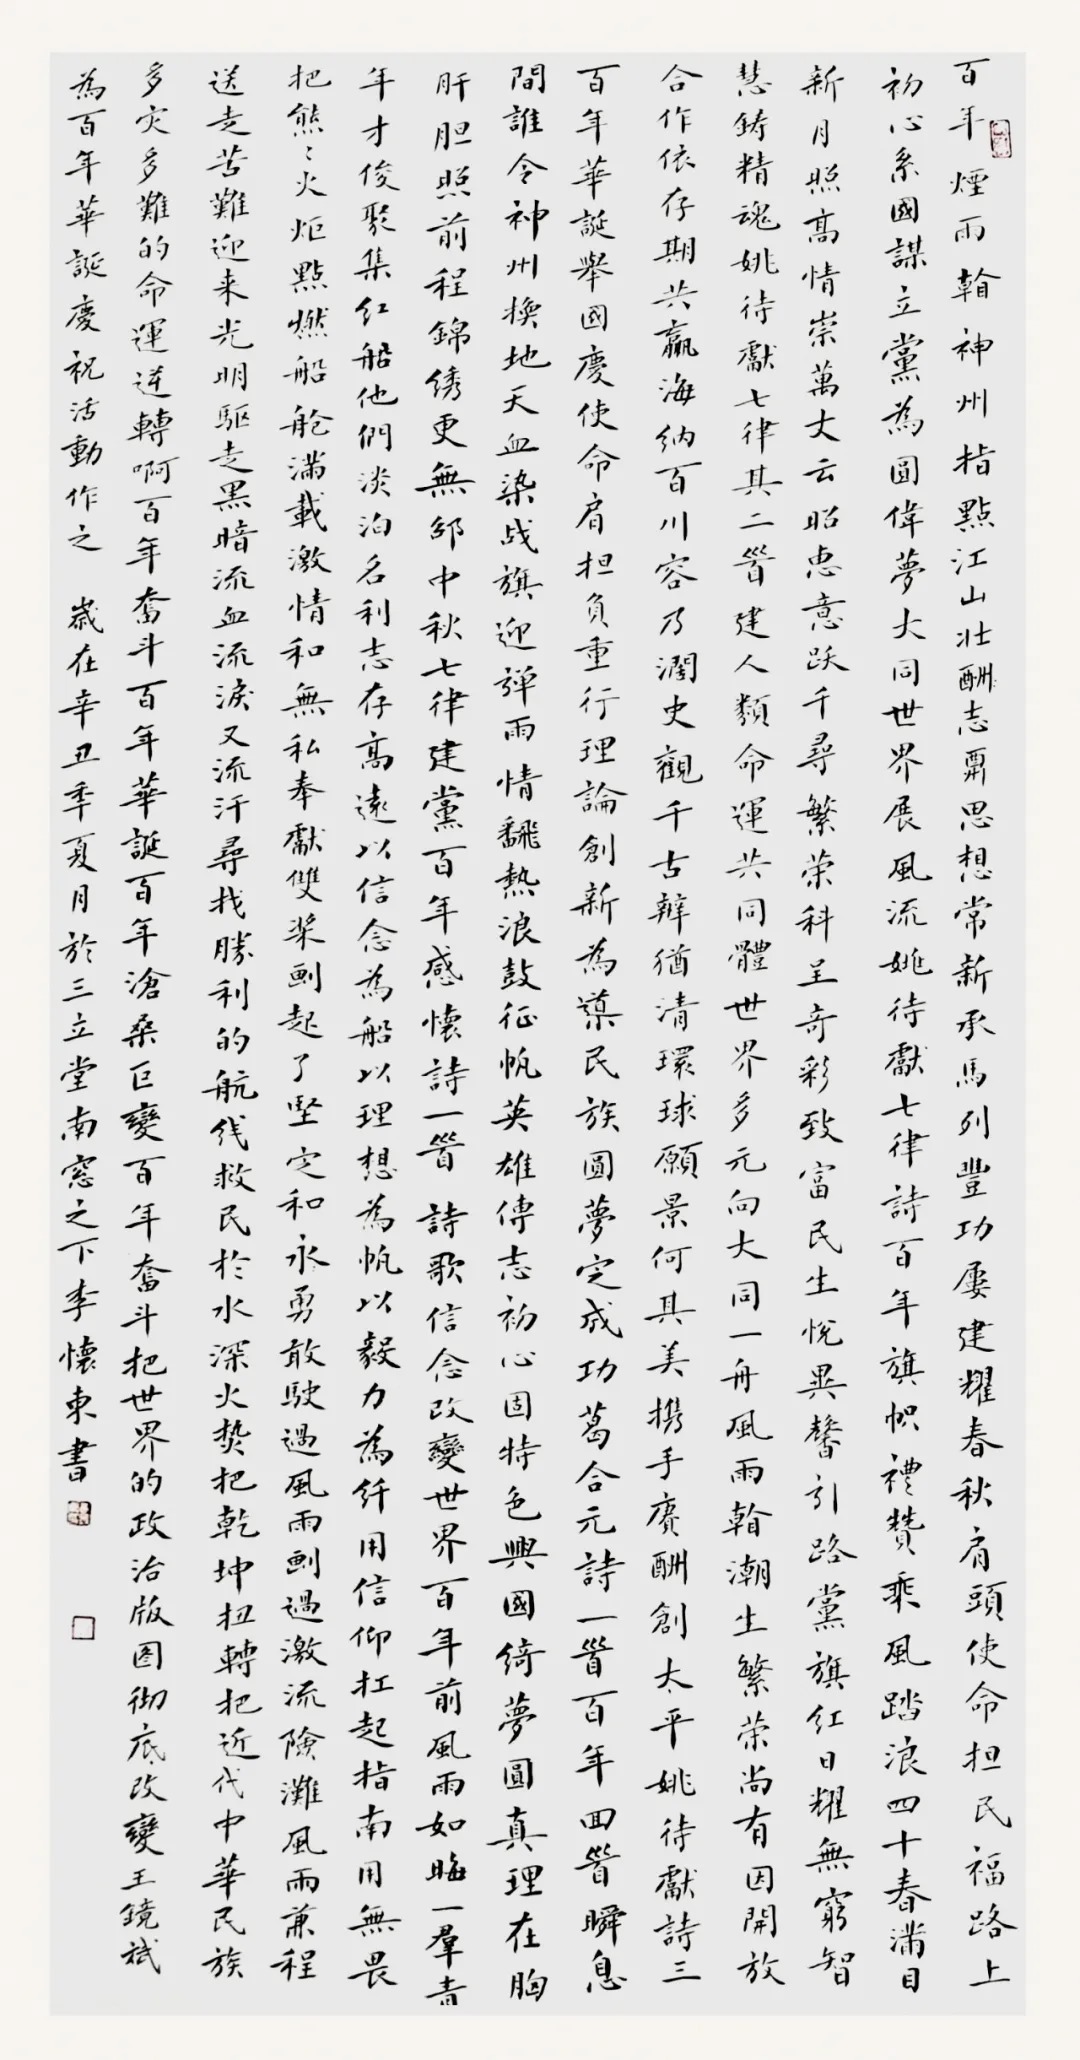 百年煙雨翰神州指點江山壯酬志肅思想常新承馬列豐功屢建耀春秋肩頭使命担民福路上
初心系國謀立黨為圓偉夢大同世界展風流姚待獻七律詩百年旗幟禮贊乘風踏浪四十春滿目
新月照高情崇萬丈云昭惠意跃千尋繁荣科呈奇彩致富民生悅異馨引路黨旗红日耀無窮智
慧鋳精魂姚待獻七律其二首建人類命運共同體世界多元向大同一舟風雨翰潮生繁荣尚有因開放
合作依存期共贏海纳百川容乃潤史觀千古辨猶清環球願景何其美携手賡酬創太平姚待獻詩三
百年華誕舉國慶使命肩担負重行理論創新為導民族圓夢定成功葛合元詩一首百年回首瞬息
間誰令神州換地天血染战旗迎弹雨情翻熱浪鼓征帆英雄傳志初心固特色興國綺夢圓真理在胸
肝胆照前程錦绣更無邹中秋七律建黨百年感懷詩一首詩歌信念改變世界百年前風雨如晦一羣青
年才俊聚集红船他們淡泊名利志存高遠以信念為船以理想為帆以毅力為纤用信仰扛起指南用無畏
把熊〻火炬點燃船舱滿載激情和無私奉獻雙桨劃起了堅定和永勇敢駛過風雨劃過激流險灘風雨兼程
送走苦難迎来光明驱走黑暗流血流淚又流汗尋找勝利的航线救民於水深火热把乾坤扭轉把近代中華民族
多灾多難的命運逆轉啊百年奮斗百年華誕百年滄桑巨變百年奮斗把世界的政治版图彻底改變王鏡斌
為百年華誕慶祝活動作之 歲在辛丑季夏月於三立堂南窓之下李懷東書